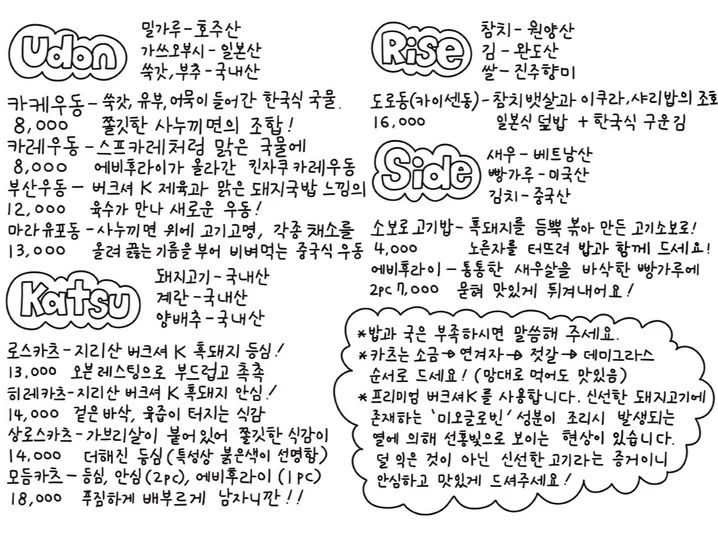 Udon
밀가루-호주산
가쓰오부시-일본산
쑥갓, 부추-국내산
카케우동-쑥갓, 유부, 어묵이 들어간 한국식 국물.
8,000 쫄깃한 사누끼면의 조합!
카레우동-스프카레처럼 맑은 국물에
8,000 에비후라이가 올라간 킨자쿠카레우동
부산우동-버크셔 K 제육과 맑은 돼지국밥 느낌의
12,000 육수가 만나 새로운 우동!
마라유포동-사누끼면 위에 고기고명, 각종 채소를
13,000 올려 끓는기름을 부어 비벼먹는 중국식 우동
Katsu
돼지고기-국내산
계란-국내산
양배추-국내산
로스카츠-지리산 버크셔 K 흑돼지 등심!
13,000 오븐레스팅으로 부드럽고 촉촉
히레카츠-지리산 버크셔 K 흑돼지 안심!
14,000 겉은 바삭, 육즙이 터지는 식감
상로스카츠-가브리살이 붙어있어 쫄깃한 식감이
14,000 더해진 등심(특성상 붉은색이 선명함)
모듬카츠-등심, 안심(2pc), 에비후라이(1pc)
18,000 푸짐하게 배부르게 남자니깐!!
Rise
참치-원양산
김-완도산
쌀-진주향미
도로동(카이센동)-참치뱃살과 이쿠라, 샤리밥의 조화
16,000 일본식 덮밥 + 한국식 구운김
Side
새우-베트남산
빵가루-미국산
김치-중국산
소보로고기밥-흑돼지를 듬뿍 볶아 만든 고기소보로!
4,000 노른자를 터뜨려 밥과 함께 드세요!
에비후라이-통통한 새우살을 바삭한 빵가루에
2pc 7,000 묻혀 맛있게 튀겨내어요!
*밥과 국은 부족하시면 말씀해 주세요.
*카츠는 소금→연겨자→젓갈→데미그라스
순서로 드세요! (망대로 먹어도 맛있음)
*프리미엄 버크셔K를 사용합니다. 신선한 돼지고기에
존재하는 '미오글로빈' 성분이 조리시 발생되는
열에 의해 선홍빛으로 보이는 현상이 있습니다.
덜 익은 것이 아닌 신선한 고기라는 증거이니
안심하고 맛있게 드셔주세요!